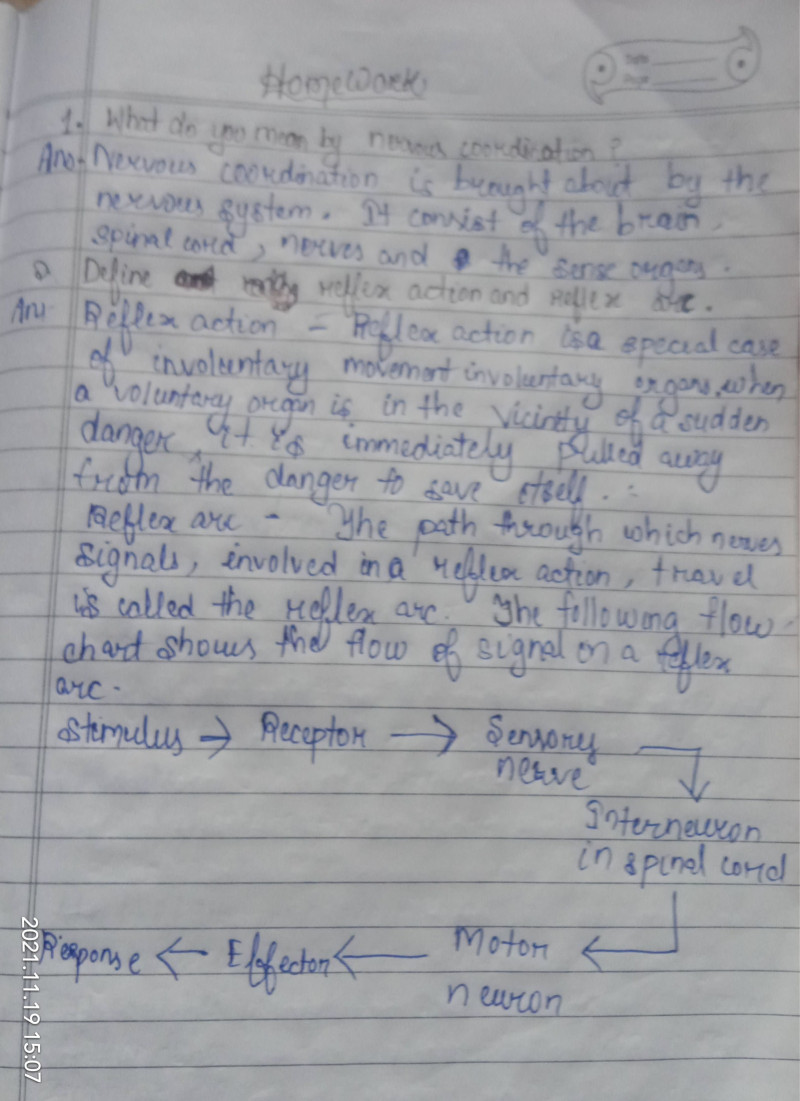 HomeWork
Date
Page
1. What do you mean by nervous coordination?
Ans- Nervous coordination is brought about by the
nervous system. It consist of the brain,
spinal cord, nerves and the sense organs.
Q Define reflex action and reflex arc.
Ans Reflex action - Reflex action is a special case
of involuntary movement involuntary organs. when
a voluntary organ is in the vicintty of a sudden
danger, it is immediately pulled away
from the danger to save itself.
Reflex arc - The path through which nerves
signals, involved in a reflex action, travel
is called the reflex arc. The following flow
chart shows the flow of signal on a reflex
arc.
Stimulus → Receptor → Sensory
nerve
Interneuron
in spinal cord
Response ← Effector ← Motor
neuron
2021.11.19 15:07